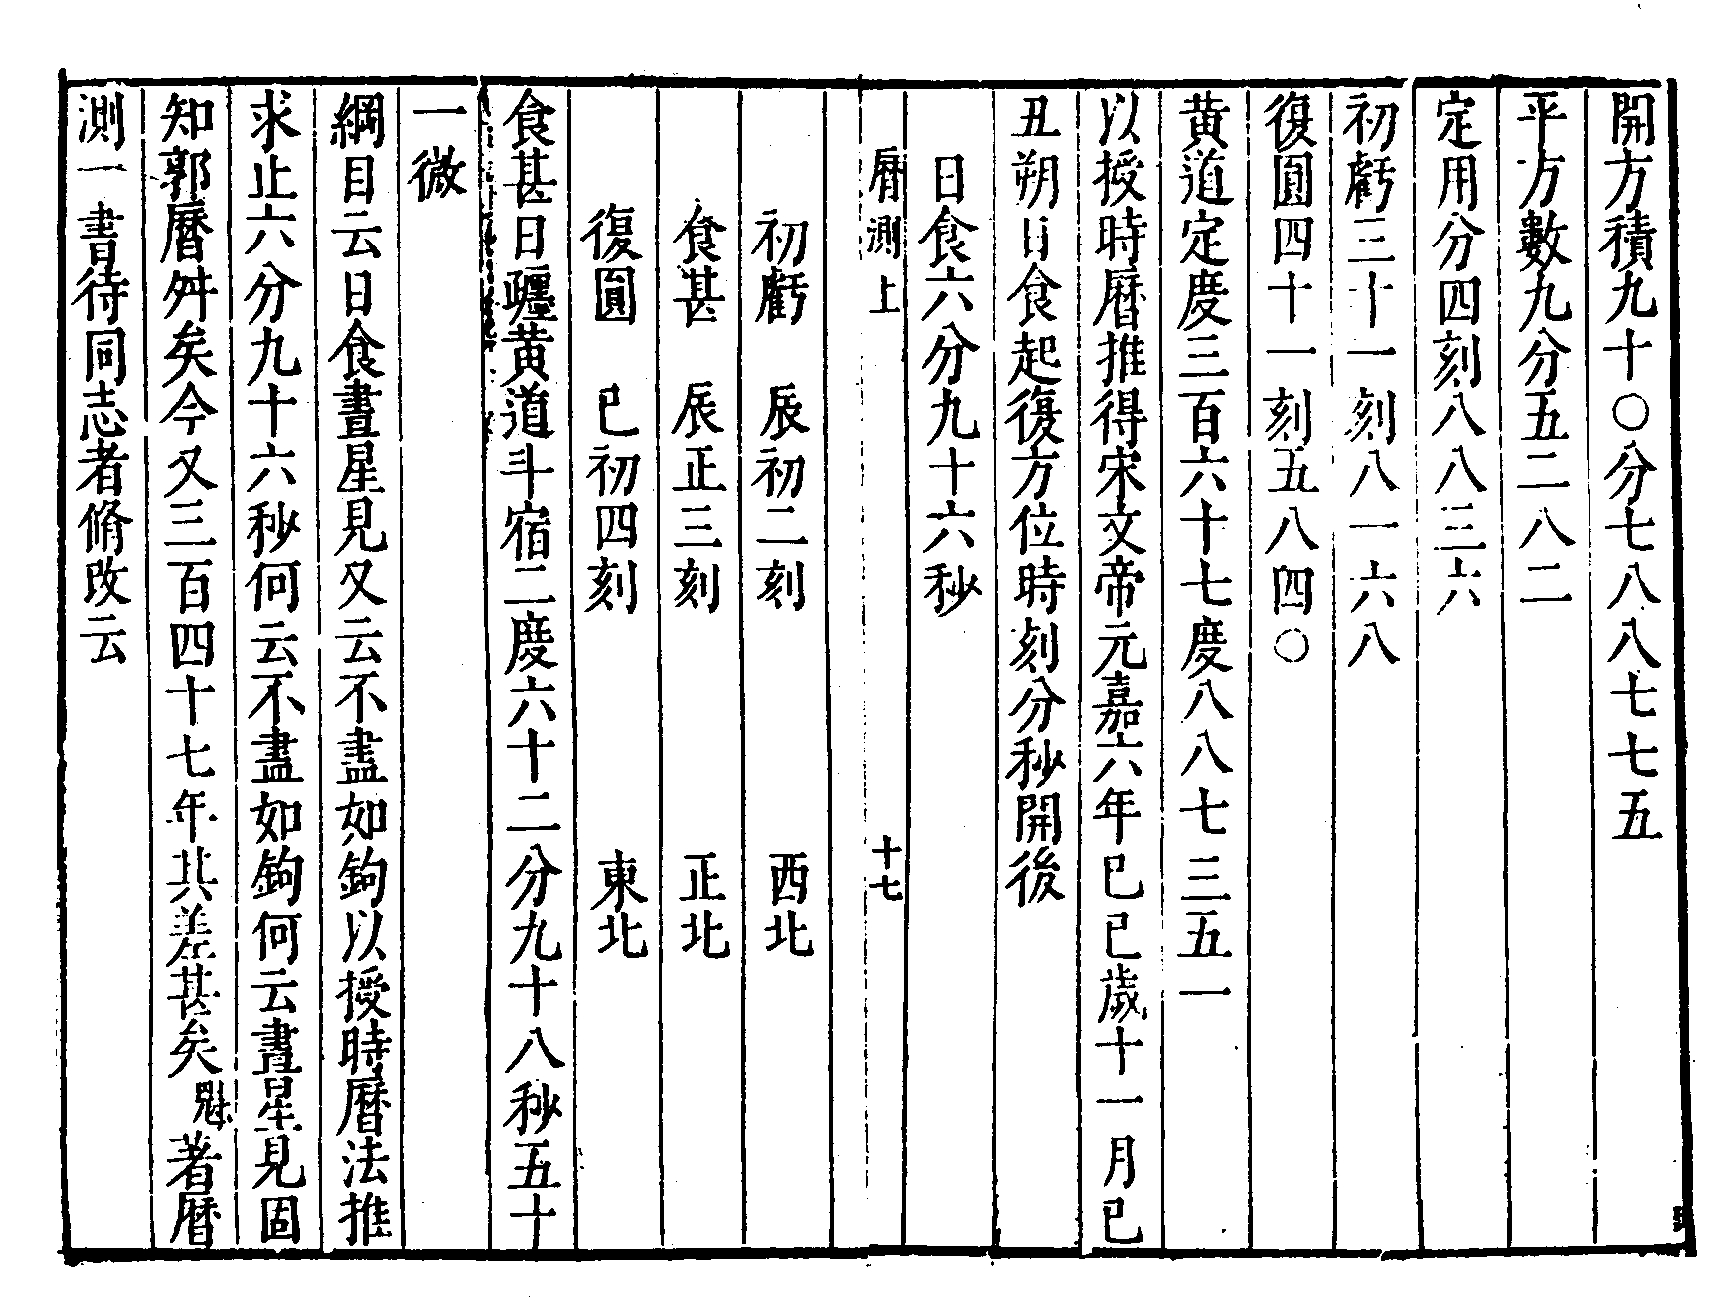 開方積九十〇分七八八七七五
平方數九分五二八二
定用分四刻八八三六
初虧三十一刻八一六八
復圓四十一刻五八四〇
黄道定度三百六十七度八八七三五一
以授時曆推得宋文帝元嘉六年已已歲十一月已
丑朔日食起復方位時刻分秒開後
日食六分九十六秒
曆測上 十七
初虧 辰初二刻 西北
食甚 辰正三刻 正北
復圓 巳初四刻 東北
食甚日躔黄道斗宿二度六十二分九十八秒五十
一微
綱目云日食晝星見又云不盡如鉤以授時曆法推
求止六分九十六秒何云不盡如鉤何云晝星見固
知郭曆舛矣今又三百四十七年共差甚矣魁著曆
測一書待同志者脩改云